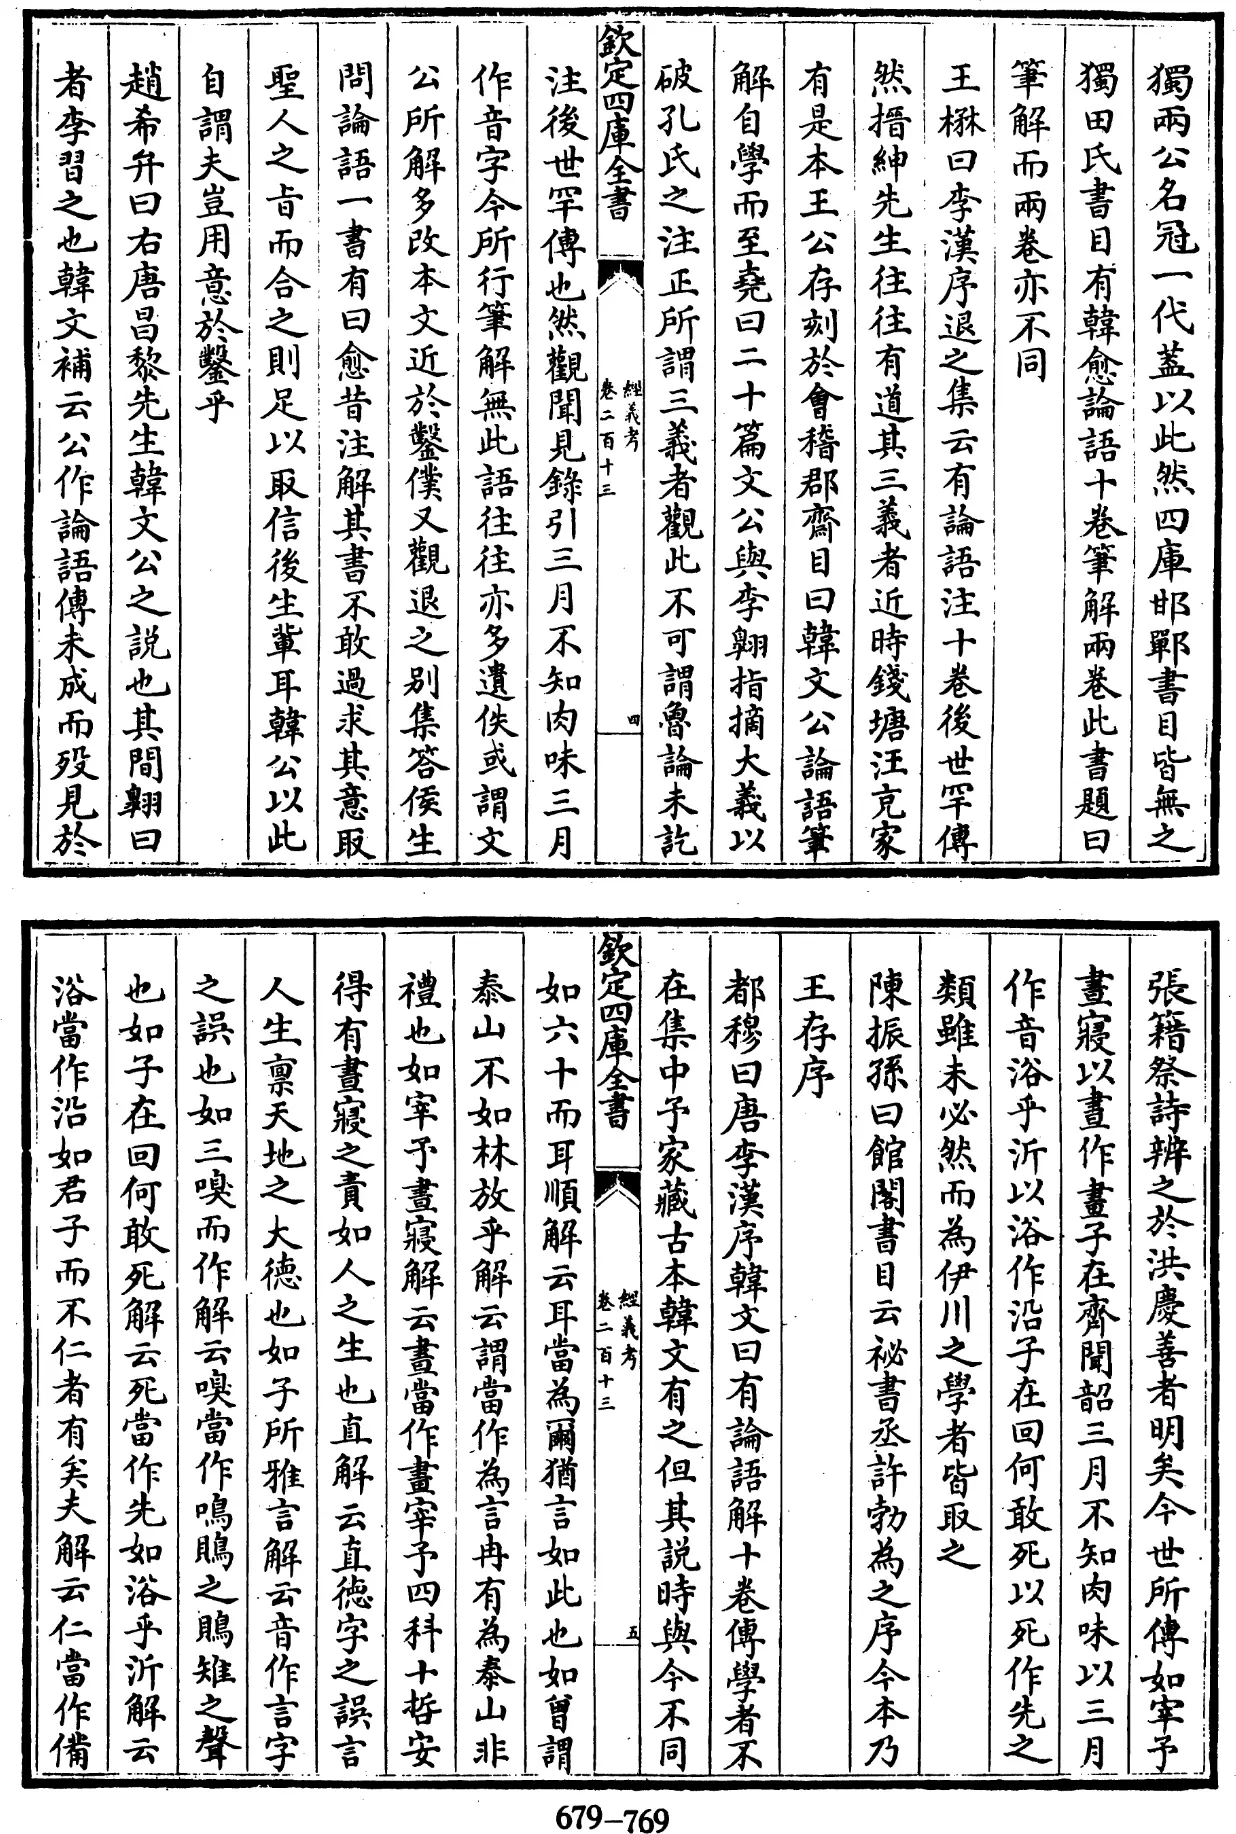 獨兩公名冠一代蓋以此然四庫邯鄲書目皆無之
獨田氏書目有韓愈論語十卷筆解兩卷此書題曰
筆解而兩卷亦不同
王楙曰李漢序退之集云有論語注十卷後世罕傳
然搢紳先生往往有道其三義者近時錢塘汪克家
有是本王公存刻於會稽郡齋目曰韓文公論語筆
解自學而至堯曰二十篇文公與李翺指摘大義以
破孔氏之注正所謂三義者觀此不可謂魯論未訖
欽定四庫全書
經義考
卷二百十三
四
注後世罕傳也然觀聞見錄引三月不知肉味三月
作音字今所行筆解無此語往往亦多遺佚或謂文
公所解多改本文近於鑿僕又觀退之别集答侯生
問論語一書有曰愈昔注解其書不敢過求其意取
聖人之㫖而合之則足以取信後生輩耳韓公以此
自謂夫豈用意於鑿乎
趙希弁曰右唐昌黎先生韓文公之説也其間翺曰
者李習之也韓文補云公作論語傳未成而殁見於
張籍祭詩辨之於洪慶善者明矣今世所傳如宰予
晝寢以晝作畫子在齊聞韶三月不知肉味以三月
作音浴乎沂以浴作沿子在回何敢死以死作先之
類雖未必然而為伊川之學者皆取之
陳振孫曰館閣書目云祕書丞許勃為之序今本乃
王存序
都穆曰唐李漢序韓文曰有論語解十卷傳學者不
在集中予家藏古本韓文有之但其説時與今不同
欽定四庫全書
經義考
卷二百十三
五
如六十而耳順解云耳當為爾猶言如此也如曾謂
泰山不如林放乎解云謂當作為言冉有為泰山非
禮也如宰予晝寢解云晝當作畫宰予四科十哲安
得有晝寢之責如人之生也直解云直德字之誤言
人生禀天地之大德也如子所雅言解云音作言字
之誤也如三嗅而作解云嗅當作嗚鵙之鵙雉之聲
也如子在回何敢死解云死當作先如浴乎沂解云
浴當作沿如君子而不仁者有矣夫解云仁當作備
679-769